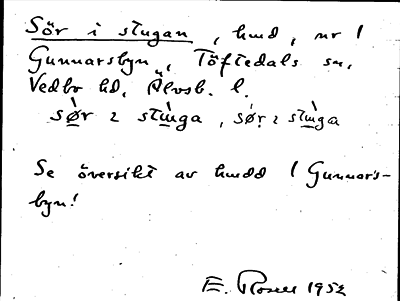 Sör i stugan, hmd, nr 1
Gunnarsbyn, Töftedals sn,
Vedbo hd, Älvsb. l.
Se översikt av hmdd i Gunnars-
byn!
E. Rosell 1952